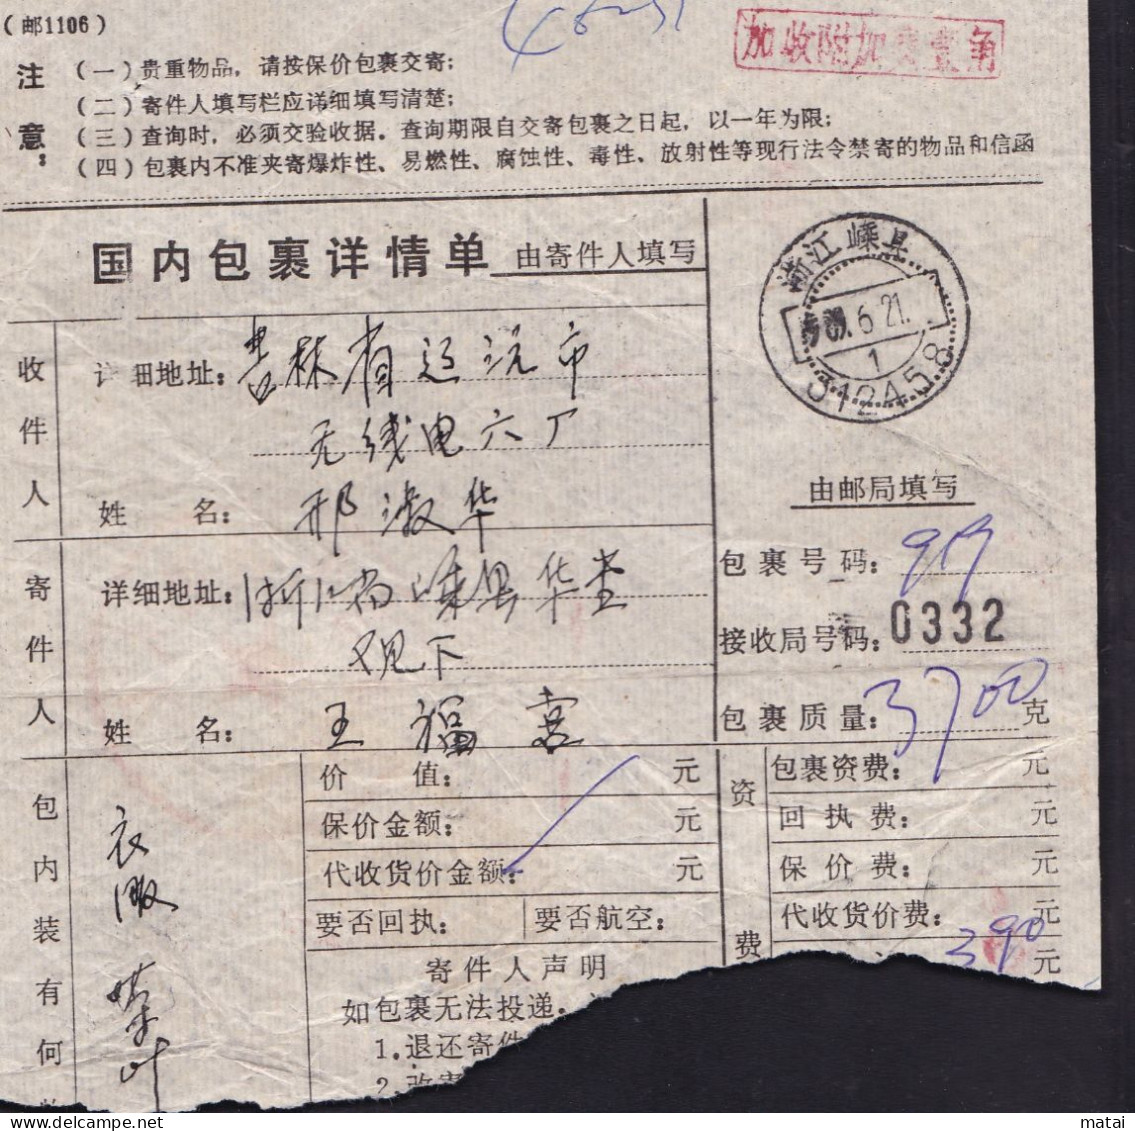 （邮1106）
加收附加费壹角
注意：
（一）贵重物品，请按保价包裹交寄；
（二）寄件人填写栏应详细填写清楚；
（三）查询时，必须交验收据。查询期限自交寄包裹之日起，以一年为限；
（四）包裹内不准夹寄爆炸性、易燃性、腐蚀性、毒性、放射性等现行法令禁寄的物品和信函
国内包裹详情单 由寄件人填写
浙江嵊县
6.21.
1
312458
收件人
详细地址：吉林省辽沅市
无线电六厂
姓 名：邢淑华
由邮局填写
寄件人
详细地址：浙江省嵊县华堂
观下
姓 名：王福喜
包裹号码：919
接收局号码：0332
包裹质量：3700克
包内装有何
衣服 茶叶
价 值： 元
保价金额： 元
代收货价金额： 元
要否回执： 要否航空：
寄件人声明
如包裹无法投递。
1.退还寄件
2.改寄
资费
包裹资费： 元
回执费： 元
保价费： 元
代收货价费： 元
390元
matai